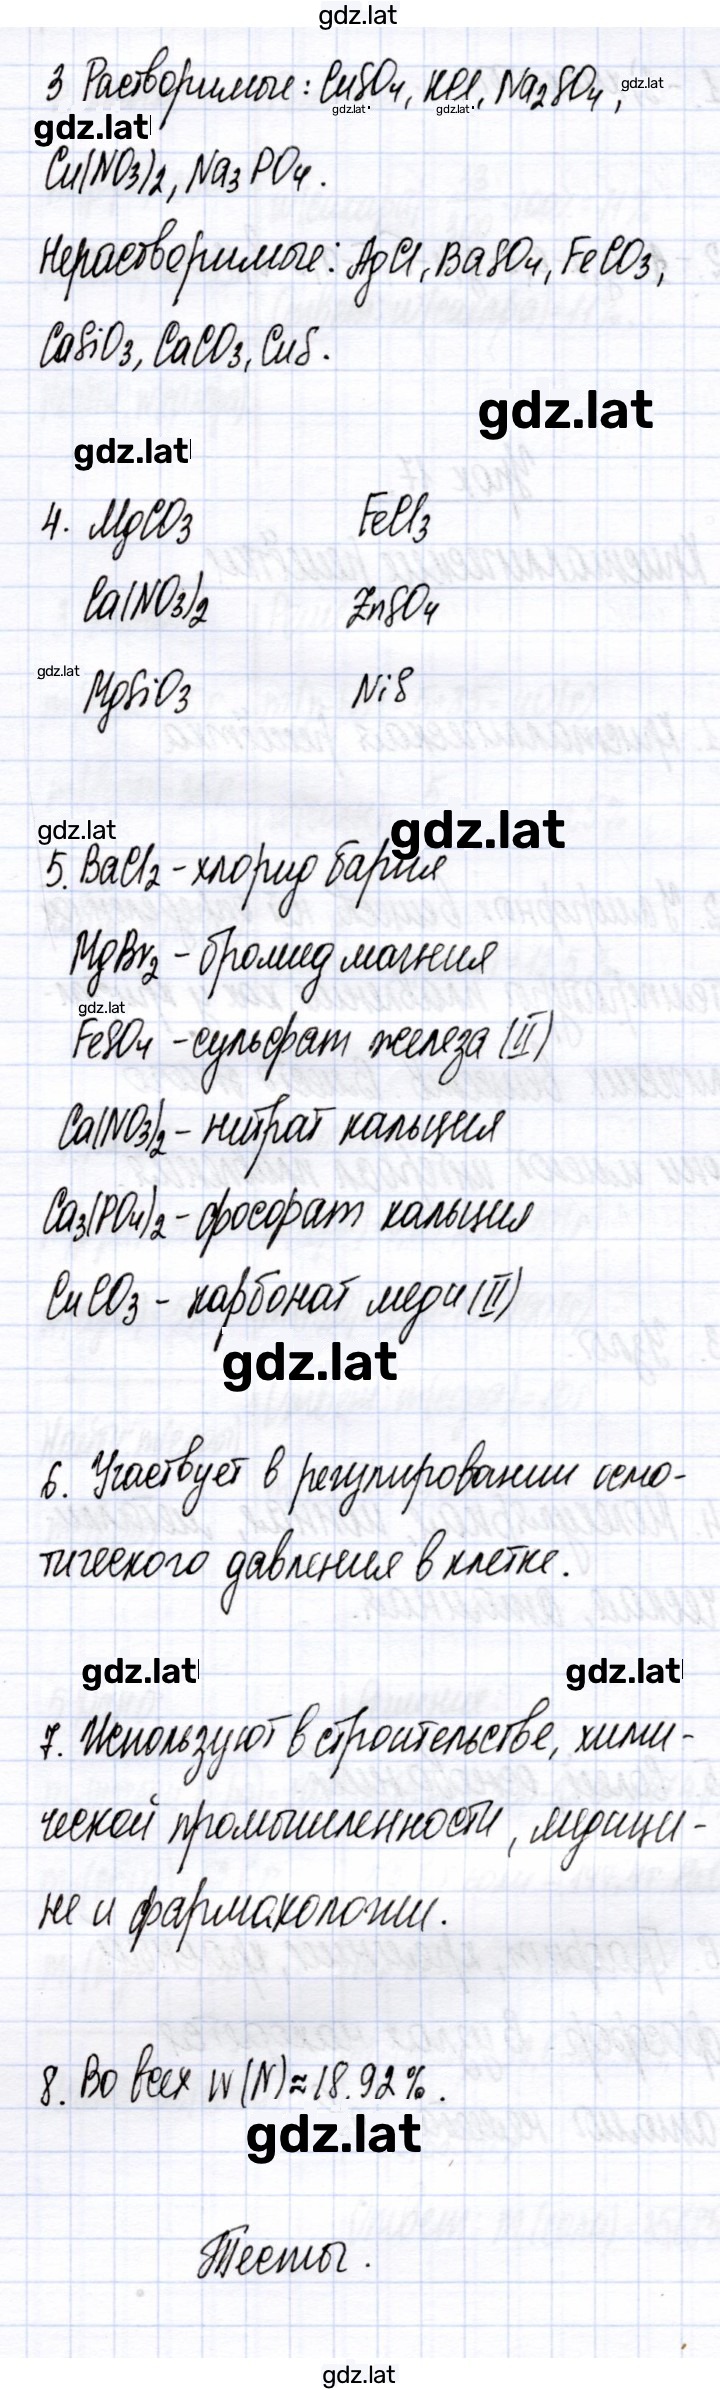 gdz.lat
3 Растворимые: CuSO4, KCl, Na2SO4,
gdz.lat
gdz.lat gdz.lat
gdz.lat
Cu(NO3)2, Na3PO4.
Нерастворимые: AgCl, BaSO4, FeCO3,
CaSiO3, CaCO3, CuS.
gdz.lat
gdz.lat
4. MgCO3 FeCl3
Ca(NO3)2 ZnSO4
gdz.lat
MgSiO3 NiS
gdz.lat gdz.lat
5. BaCl2 - хлорид бария
MgBr2 - бромид магния
gdz.lat
FeSO4 - сульфат железа (II)
Ca(NO3)2 - нитрат кальция
Ca3(PO4)2 - фосфорат кальция
CuCO3 - карбонат меди (II)
gdz.lat
6. Участвует в регулировании осмо-
тического давления в клетке.
gdz.lat gdz.lat
7. Используют в строительстве, хими-
ческой промышленности, медици-
не и фармакологии.
8. Во всех W(N)≈18.92%.
gdz.lat
Тесты.
gdz.lat